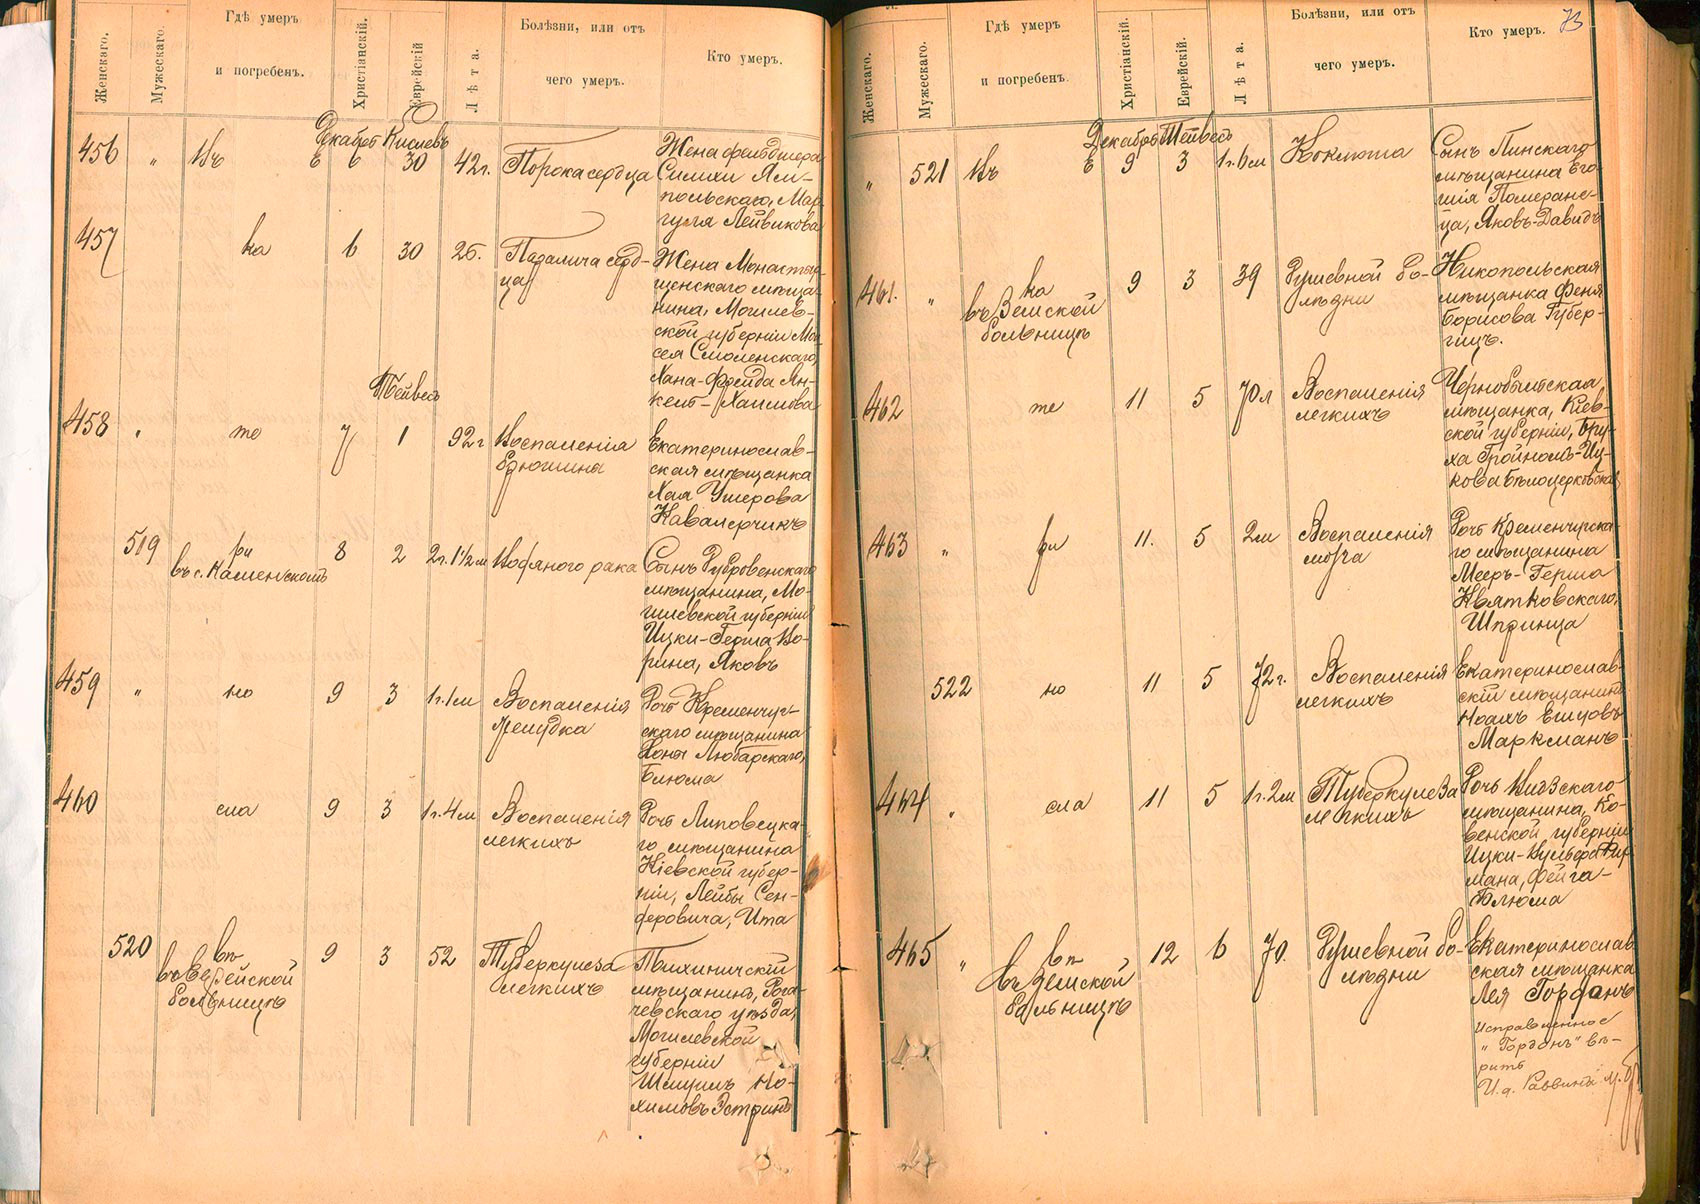 Женскаго.
Мужескаго.
Гдѣ умеръ
и погребенъ.
Христіанскій.
Еврейскій
Лѣта.
Болѣзни, или отъ
чего умеръ.
Кто умеръ.
Декабрь Кислевъ
456 " Въ Е 6 30 42г. Порока сердца
Жена фельдшера
Симхи Ям-
польскаго, Мар
гуля Лейвикова
457 ка 6 30 25. Паралича серд-
ца
Жена Монастыр-
щенскаго мѣща-
нина, Могилев-
ской губерніи Мо-
сея Смоленскаго,
Хана-Фрейда Ян-
кель-Хаимова
Тейвесъ
458 " те 7 1 92г Воспаленія
брюшины
Екатеринослав-
ская мѣщанка
Хая Ушерова
Кавалерчикъ
519 ри 8 2 2г. 1½м Водяного рака
въ с. Каменскомъ
Сынъ Дубровенскаго
мѣщанина, Мо-
гилевской губерніи
Ицки-Герша Во-
рина, Яковъ
459 " но 9 3 1г.1м Воспаленія
желудка
Дочь Кременчуг-
скаго мѣщанина
Коны Любарскаго,
Блюма
460 сла 9 3 1г.4м Воспаленія
легкихъ
Дочь Липовецка-
го мѣщанина
Кіевской губер-
ніи, Лейбы Сен-
деровича, Ита
520 вп 9 3 52 Туберкулеза
легкихъ
въ Еврейской
больницѣ
Тихиничскій
мѣщанинъ, Рога-
чевскаго уѣзда,
Могилевской
губерніи
Шмуилъ Но-
химовъ Эстринъ
Женскаго.
Мужескаго.
Гдѣ умеръ
и погребенъ.
Христіанскій.
Еврейскій.
Лѣта.
Болѣзни, или отъ
чего умеръ.
Кто умеръ.
73
Декабрь Тейвесъ
" 521 Въ Е 9 3 1г.6м Коклюша
Сынъ Пинскаго
мѣщанина Его-
шія Померан-
ца, Яковъ-Давидъ
461. " ка 9 3 39 Душевной бо-
лѣзни
въ Земской
больницѣ
Никопольская
мѣщанка Феня
Борисова Губер-
гицъ.
462 те 11 5 70л Воспаленія
легкихъ
Чернобыльская
мѣщанка, Кіев-
ской губерніи, Бру-
ха Гройномъ-Иц-
кова Бѣлоцерковская
463 " ри 11. 5 2м Воспаленія
мозга
Дочь Кременчугска-
го мѣщанина
Мееръ-Герша
Квятковскаго,
Шпринца
522 но 11 5 72г. Воспаленія
легкихъ
Екатеринослав-
скій мѣщанинъ
Ноахъ Ецковъ
Маркманъ
464 " сла 11 5 1г.2м Туберкулеза
легкихъ
Дочь
мѣщанина, Ко-
венской губерніи
Ицки-Вульфа Фур
мана, Фейга-
Блюма
465 " вп 12 6 70. Душевной бо-
лѣзни
въ Земской
больницѣ
Екатеринослав
ская мѣщанка
Лея Горданъ
Исправленное
"Горданъ" вѣ-
рить
И.д. Раввина